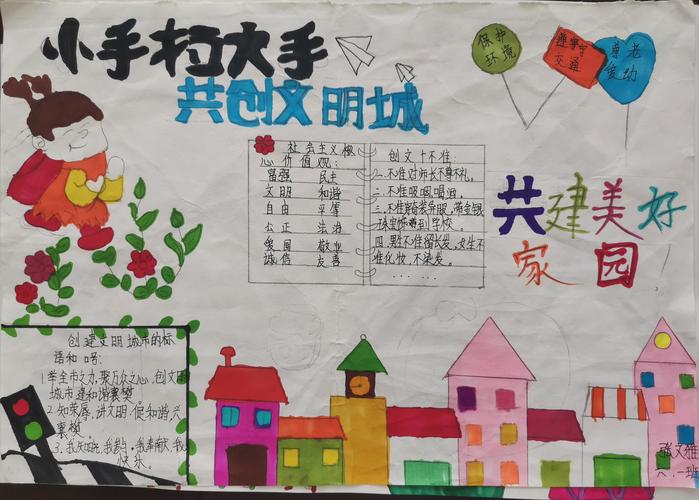 小手拉大手
共创文明城
保护
环境
遵守
交通
尊老
爱幼
社会主义核
心价值观:
富强 民主
文明 和谐
自由 平等
公正 法治
爱国 敬业
诚信 友善
创文十不准:
一.不准对师长不尊不礼。
二.不准吸烟,喝酒。
三.不准奇装异服,带金银
珠宝首饰到学校。
四.男生不准留长发,女生不
准化妆,不染发。
......
共建美好
家园
创建文明城市的标
语和口号:
1.举全市之力,聚万众之心,创文明
城市,建和谐襄樊
2.知荣辱,讲文明,促和谐,兴
襄樊
3.我
快乐。
张文雅
六.一班